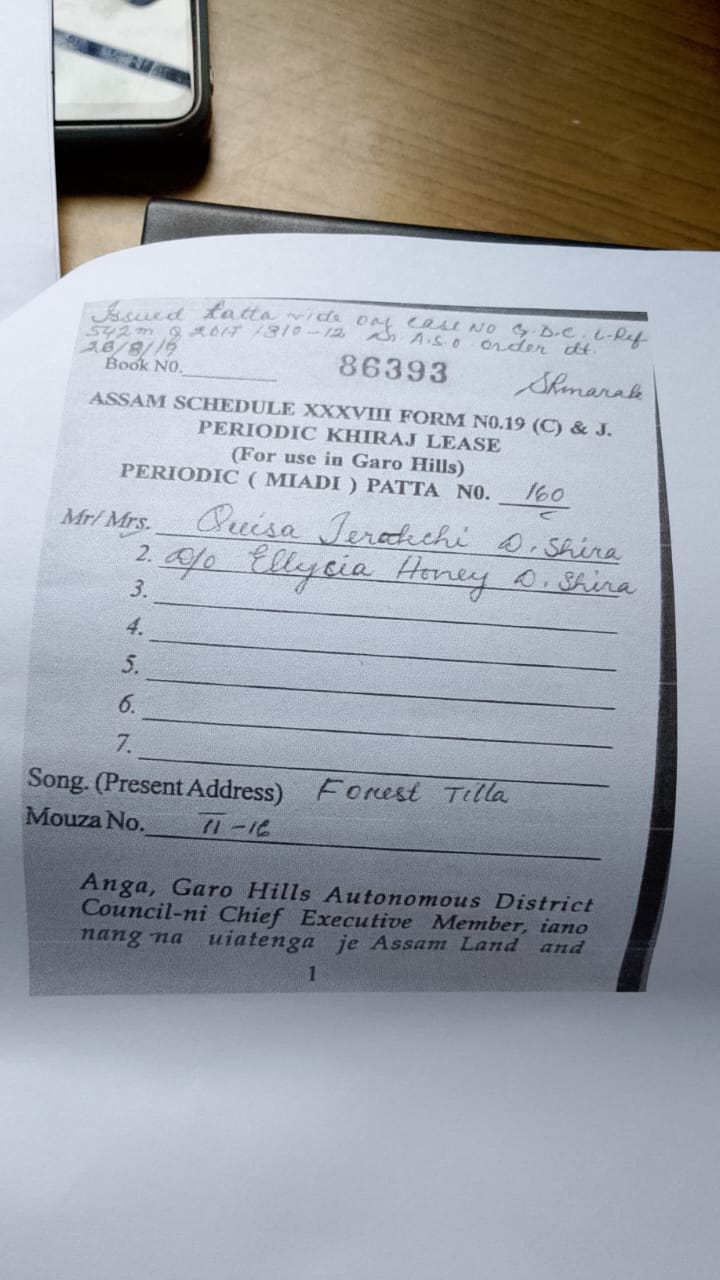 Issued Patta vide ORJ Case No G.D.C. L. Ref
542 m of 2017 1310-12 A.S.O order dt.
28/8/19
Book N0.
86393
Shmarak
ASSAM SCHEDULE XXXVIII FORM N0.19 (C) & J.
PERIODIC KHIRAJ LEASE
(For use in Garo Hills)
PERIODIC ( MIADI ) PATTA N0. 160
Mr/Mrs. Quisa Jerakchi D. Shira
2. D/o Ellycia Honey D. Shira
3.
4.
5.
6.
7.
Song. (Present Address) Forest Tilla
Mouza No. II-16
Anga, Garo Hills Autonomous District
Council-ni Chief Executive Member, iano
nang na uiatenga je Assam Land and
1